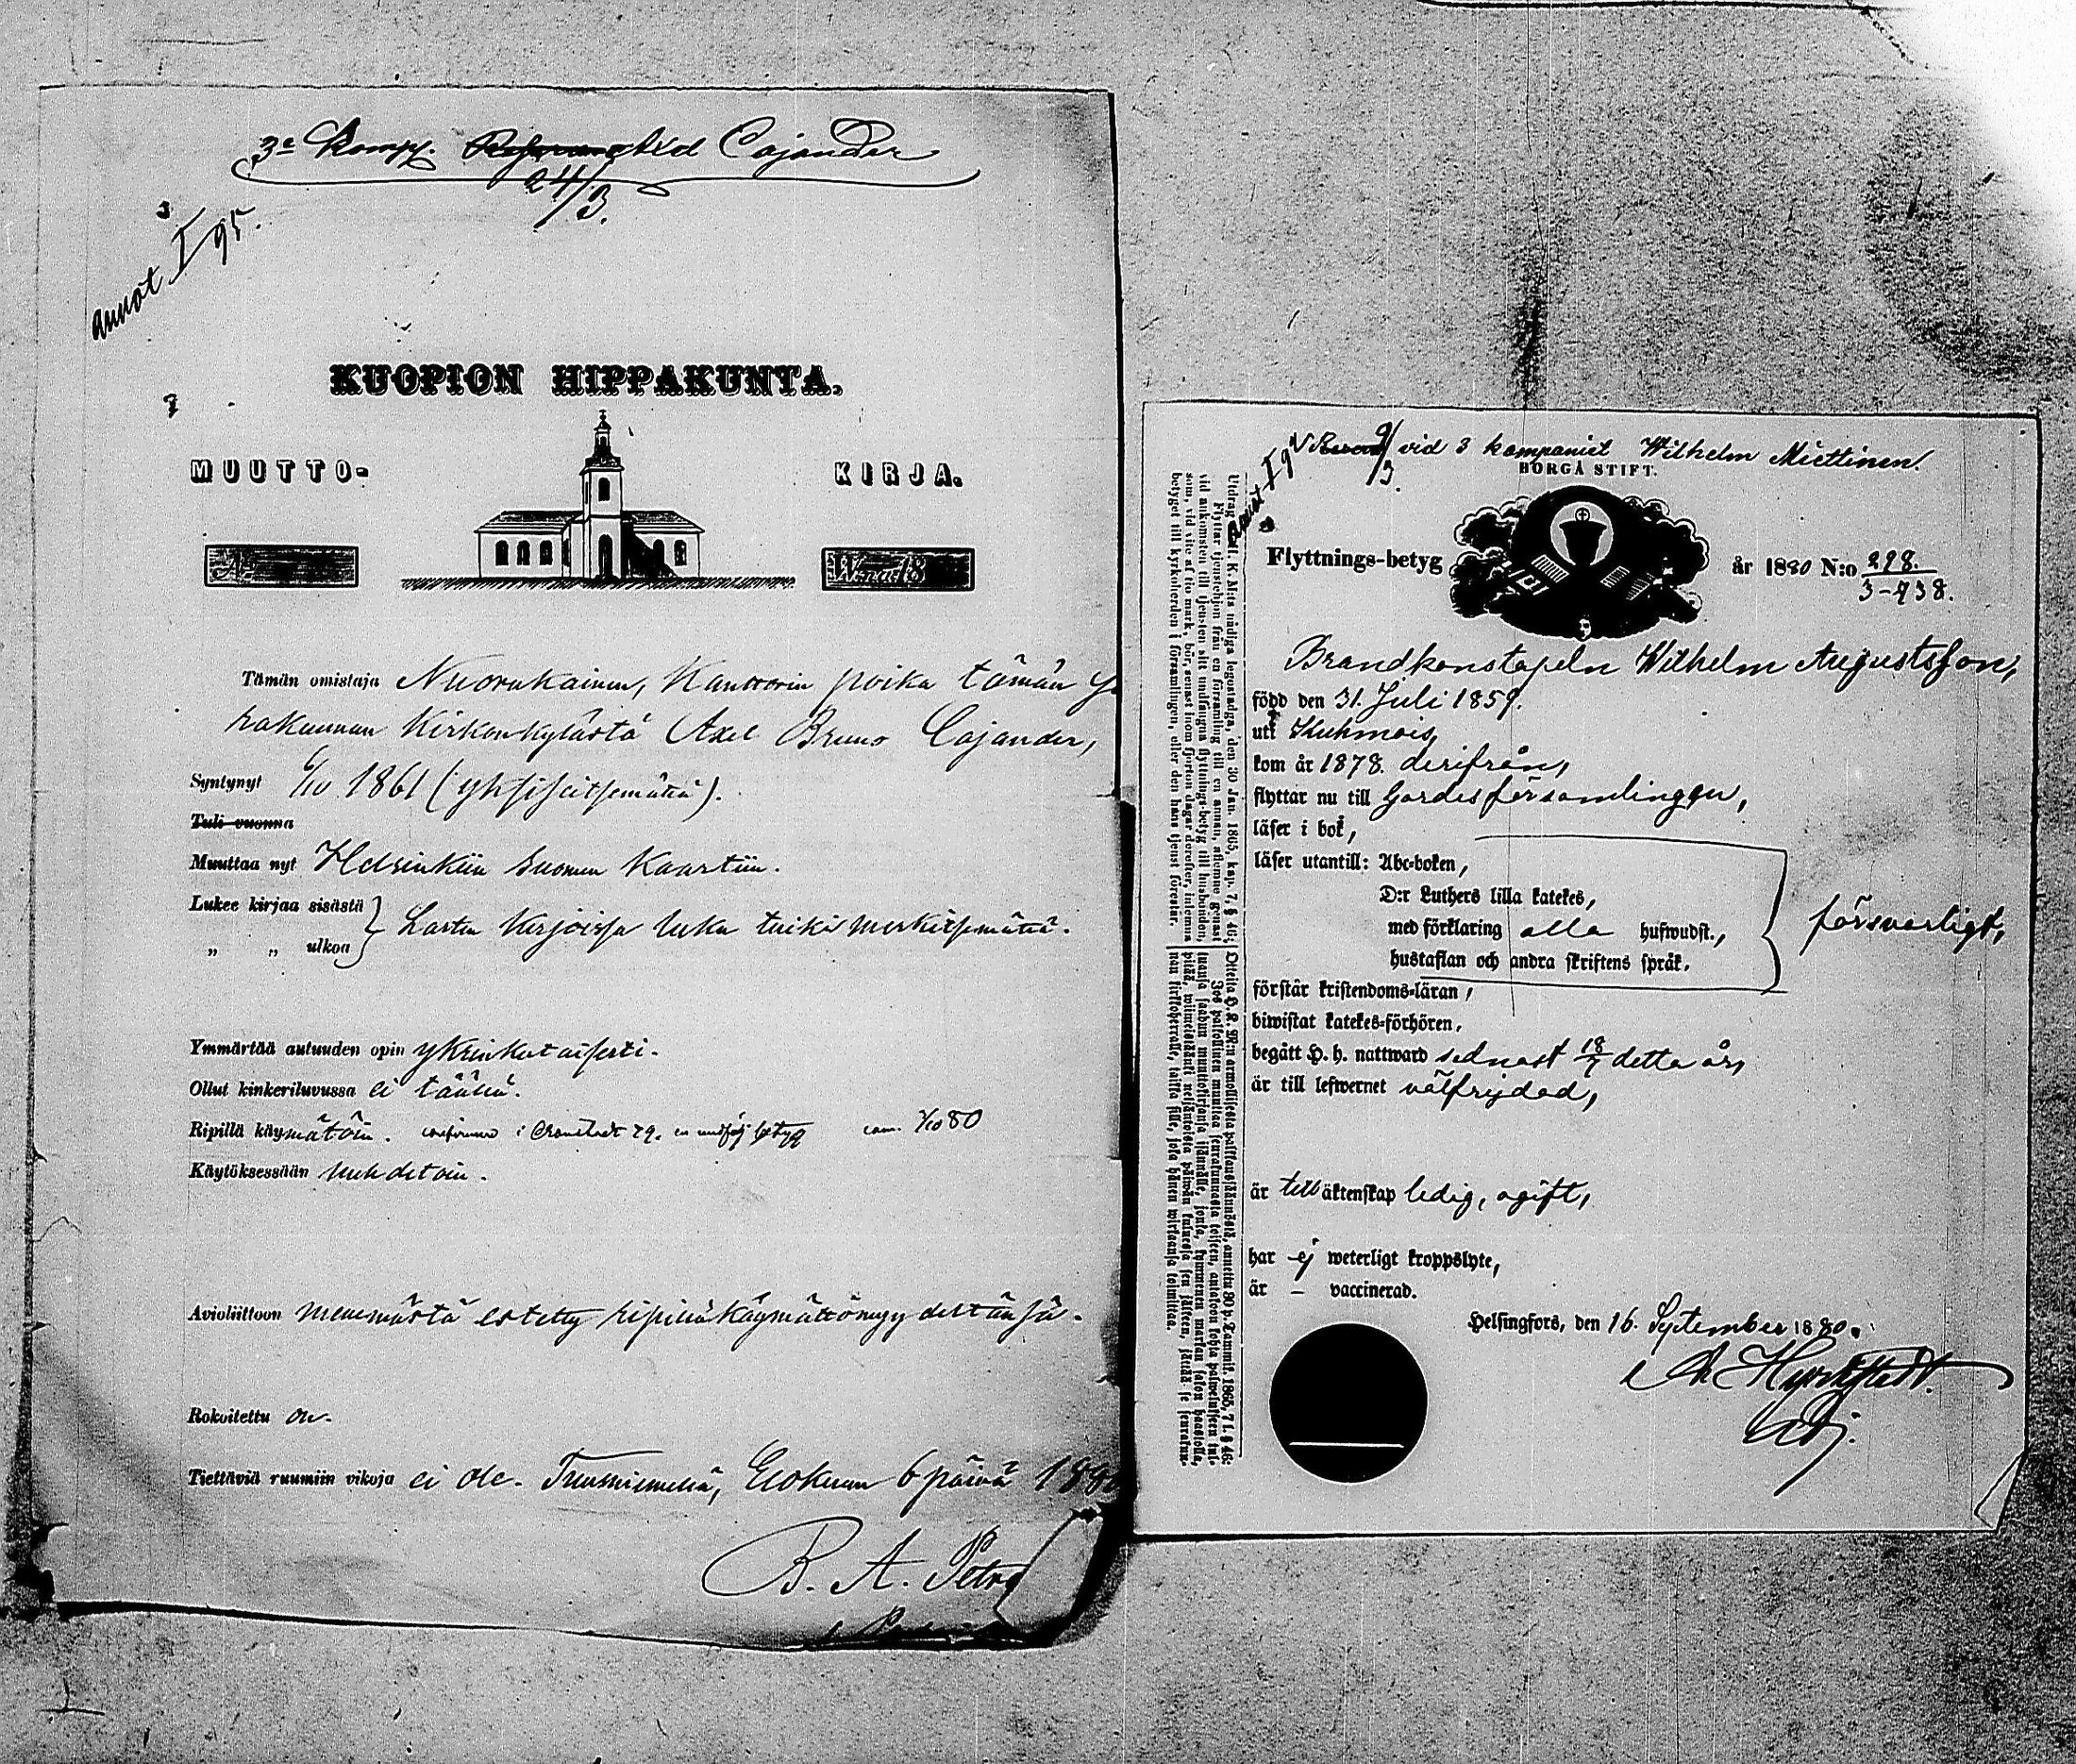 3e Komp. Axel Cajander
24/3.
annot I 95.
KUOPION HIPPAKUNTA.
MUUTTO-
KIRJA.
N:o
W:na 18
Tämän omistaja Nuorukainen, Kanttorin poika tämän
rakunnan Kirkonkylästä Axel Bruno Cajander,
Syntynyt 6/10 1861 (yksiseitsemättä).
Tuli vuonna
Muuttaa nyt Helsinkiin Suomen Kaartiin.
Lukee kirjaa sisästä
„ „ ulkoa
Lasten kirjoissa luku taito merkitsemättä.
Ymmärtää autuuden opin yksinkertaisesti.
Ollut kinkeriluvussa ei täällä.
Ripillä käymätöin. confirmerad i Cronstadt 79. betyg com. 80
Käytöksessään nuhdetoin.
Avioliittoon menemästä estetty ripillä käymättömyydestänsä.
Rokoitettu on.
Tiettäviä ruumiin vikoja ei ole. Tuusniemellä, Elokuun 6 päivä 188
B. A. Petr
annot I 9
9/3. vid 3 kompaniet Wilhelm Miettinen.
BORGÅ STIFT.
Flyttnings-betyg
år 1880 N:o 298.
3-938.
Brandkonstapeln Wilhelm Augustsson,
född den 31. Juli 1859.
uti Kuhmois,
kom år 1878. derifrån,
flyttar nu till Gardesförsamlingen,
läser i bok,
läser utantill: Abc-boken,
D:r Luthers lilla katekes,
med förklaring alla hufwudst.,
hustaflan och andra skriftens språk.
försvarligt,
förstår kristendoms-läran,
biwistat katekes-förhören,
begått H. h. nattward sednast 18/7 detta år,
är till lefwernet välfrejdad,
är till äktenskap ledig, ogift,
har ej weterligt kroppslyte,
är – vaccinerad.
Helsingfors, den 16. September 1880.
adj.
Utdrag K. M:ts nådiga legostadga, den 30 Jan. 1865, kap. 7, § 46:
Flyttar tjenstehjon från en församling till en annan, aflemne genast
vid ankomsten till tjensten sitt undfångna flyttnings-betyg till husbonden,
som, vid vite af tio mark, bör, senast inom fjorton dagar derefter, inlemna
betyget till kyrkoherden i församlingen, eller den hans tjenst förestår.
Otteita H. K. M:n armollisesta palkkaussäännöstä, annettu 30 p. Tammik. 1865, 7 l. § 46:
Jos palkollinen muuttaa seurakunnasta toiseen, antakoon kohta palwelukseen tul-
tuansa saadun muuttokirjansa isännälle, jonka, kymmenen markan sakon haastolla,
pitää, wiimeistäänki neljäntoista päiwän kuluessa sen jälkeen, jättää se seurakun-
nan kirkkoherralle, taikka sille, joka hänen wirkaansa toimittaa.